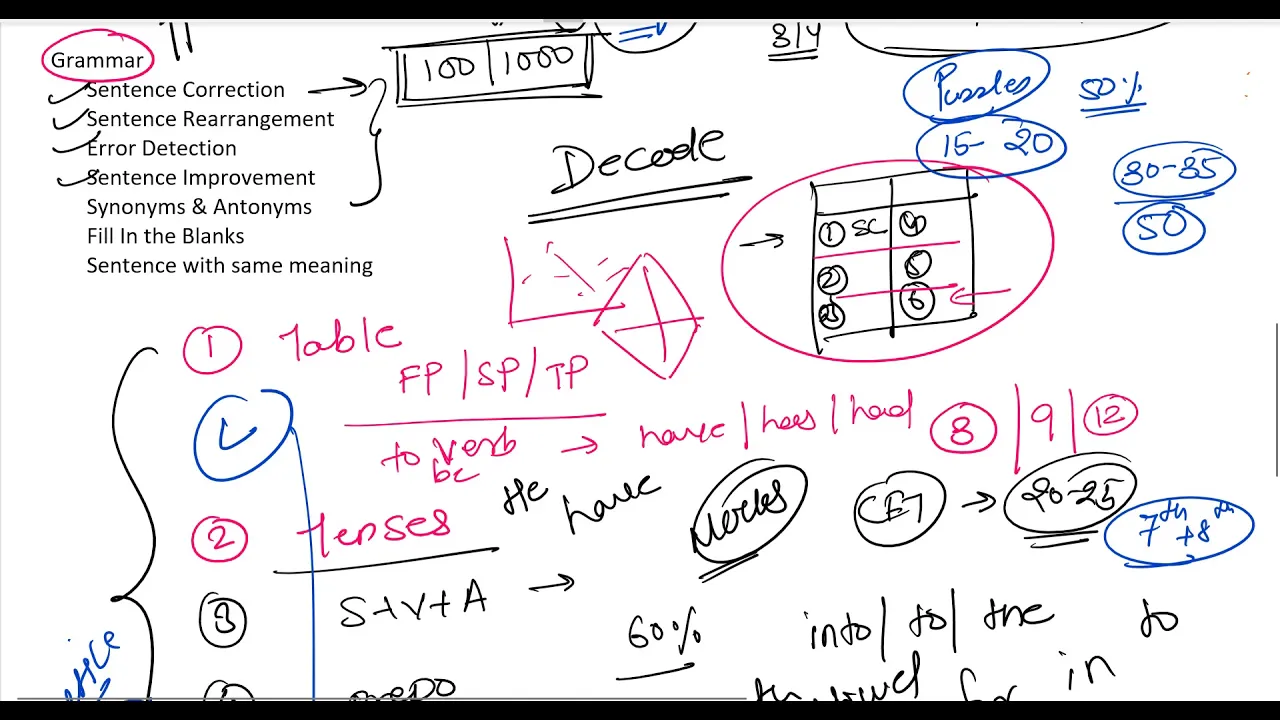 Grammar
Sentence Correction
Sentence Rearrangement
Error Detection
Sentence Improvement
Synonyms & Antonyms
Fill In the Blanks
Sentence with same meaning
100 | 1000
3/4
Puzzles
50%
15-20
Decode
30-35
50
① SC ④
② ⑤
③ ⑥
① Table
FP / SP / TP
to verb → have / has / had
be
⑧ | 9 | ⑫
② Tenses
He have
Mocks
CET → 20-25
7th + 8th
③ S+V+A →
60%
into / to / the to
for in